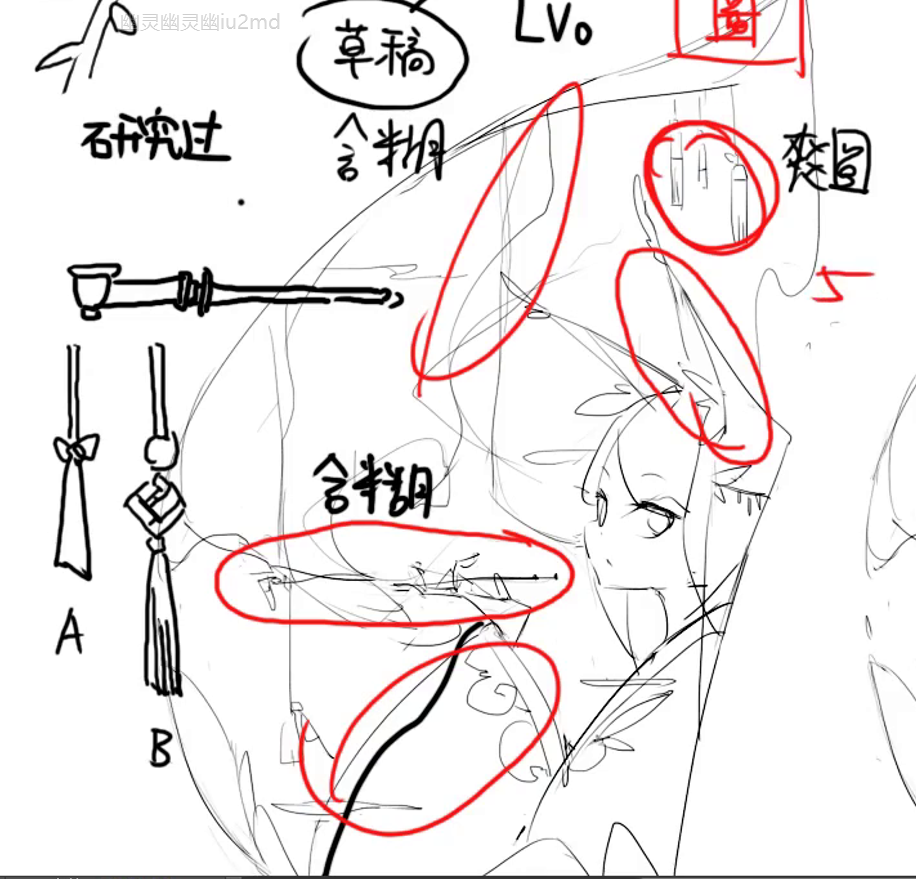 幽灵幽灵幽iu2md
草稿
LV。
圖
研究过
含糊
爽圖
5
含糊
A
B